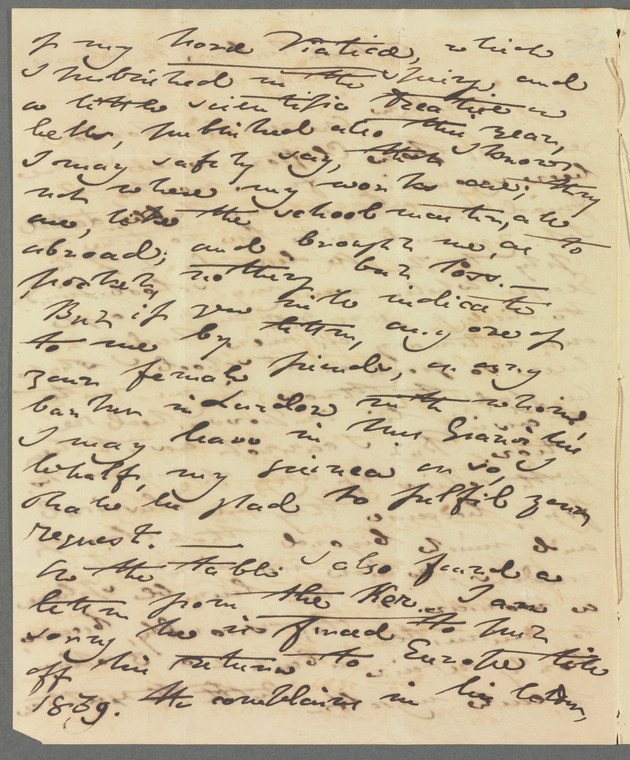 of my horæ Viaticæ, which
I published in the Spring, and
a little scientific treatise on
bells, published also this year,
I may safely say, I know
not where my works are; they
are, like the schoolmaster, all
abroad; and brought me, as to
pockets, nothing but loss.—
But if you will indicate
to me by letter, any one of
your female friends, or any
banker in London with whom
I may leave in his
behalf, my guinea or so, I
shall be glad to fulfil your
request.—
On the table I also found a
letter from the Ker. I am
sorry he is forced to put
off his return to Europe till
1839. He complains in his letter,